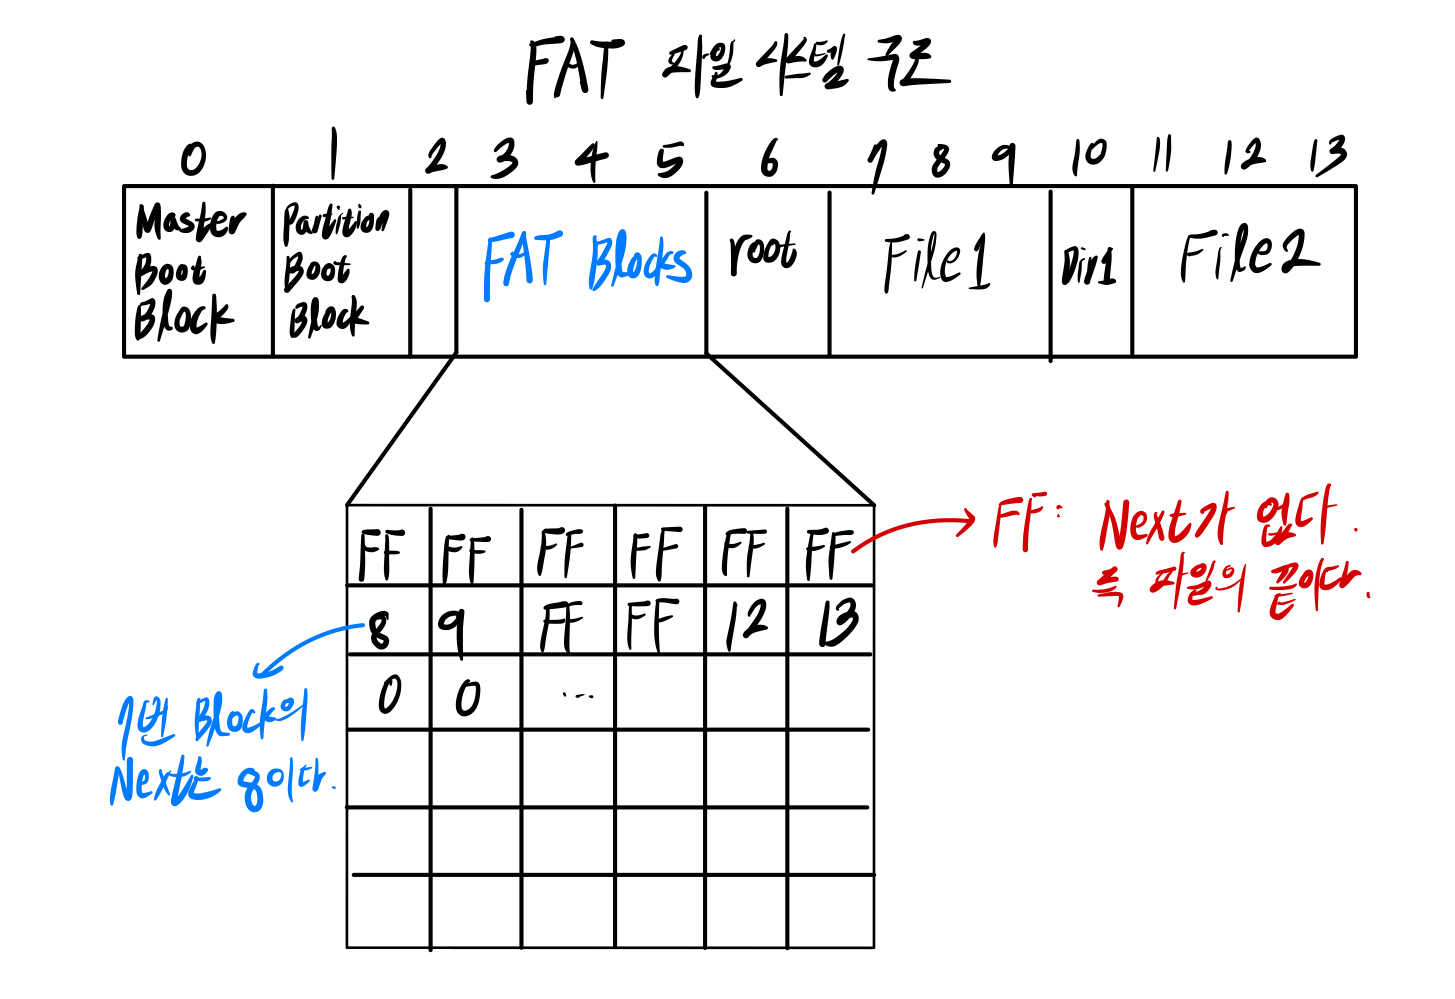 FAT 파일 시스템 구조
0 1 2 3 4 5 6 7 8 9 10 11 12 13
Master
Boot
Block
Partition
Boot
Block
FAT Blocks
root
File1
Dir1
File2
FF FF FF FF FF FF
8 9 FF FF 12 13
0 0 ...
FF: Next가 없다.
즉 파일의 끝이다.
7번 Block의
Next는 8이다.